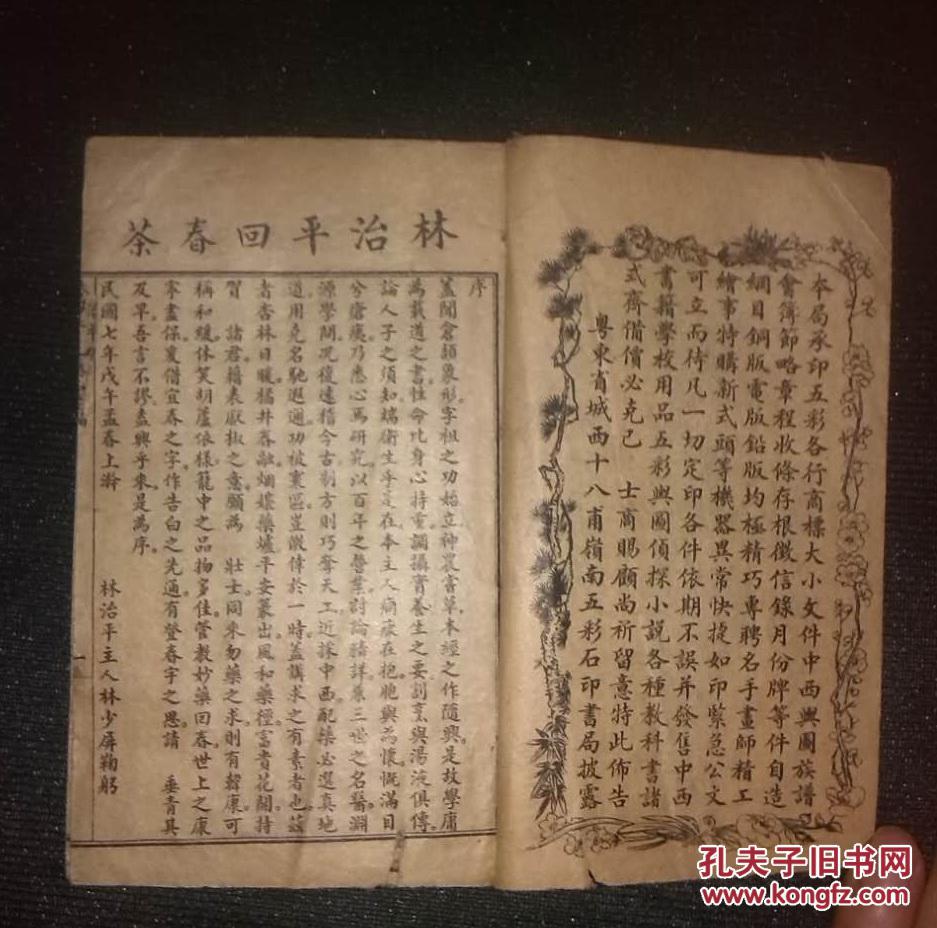 本局承印五彩各行商標大小文件中西輿圖族譜
會簿節略章程收條存根徵信錄月份牌等件自造
網目銅版電版鉛版均極精巧專聘名手畫師精工
繪事特購新式頭等機器異常快捷如印緊急公文
可立而待凡一切定印各件依期不誤并發售中西
書籍學校用品五彩輿圖偵探小說各種教科書諸
式齊備價必克己 士商賜顧尚祈留意特此佈告
粵東省城西十八甫嶺南五彩石印書局披露
林治平回春茶
序
蓋聞倉頡象形字祖之功始立神農嘗草本經之作隨興是故學庸
為載道之書性命比身心持重調攝實養生之要割烹與湯液俱傳
論人子之須知端衛生乎是在本主人痌瘝在抱胞與為懷慨滿目
兮瘡痍乃悉心焉研究以百年之醫業討論綦詳兼三世之名醫淵
源學問况復遠稽今古制方則巧奪天工近採中西配藥必選真地
道用克名馳遐邇功被寰區豈徼倖於一時蓋講求之有素者也茲
者杏林日暖橘井春融烟嬝藥爐平安篆出風和藥徑富貴花開持
賀 諸君藉表獻椒之意願為 壯士同來勿藥之求則有韓康可
稱和緩休笑胡蘆依樣籠中之品物多佳管教妙藥回春世上之康
寧盡保爰借宜春之字作告白之先通有登春宇之恩請 垂青具
及早吾言不謬盍興乎來是為序
民國七年戊午孟春上澣 林治平主人林少屏鞠躬
一
孔夫子旧书网
www.kongfz.com